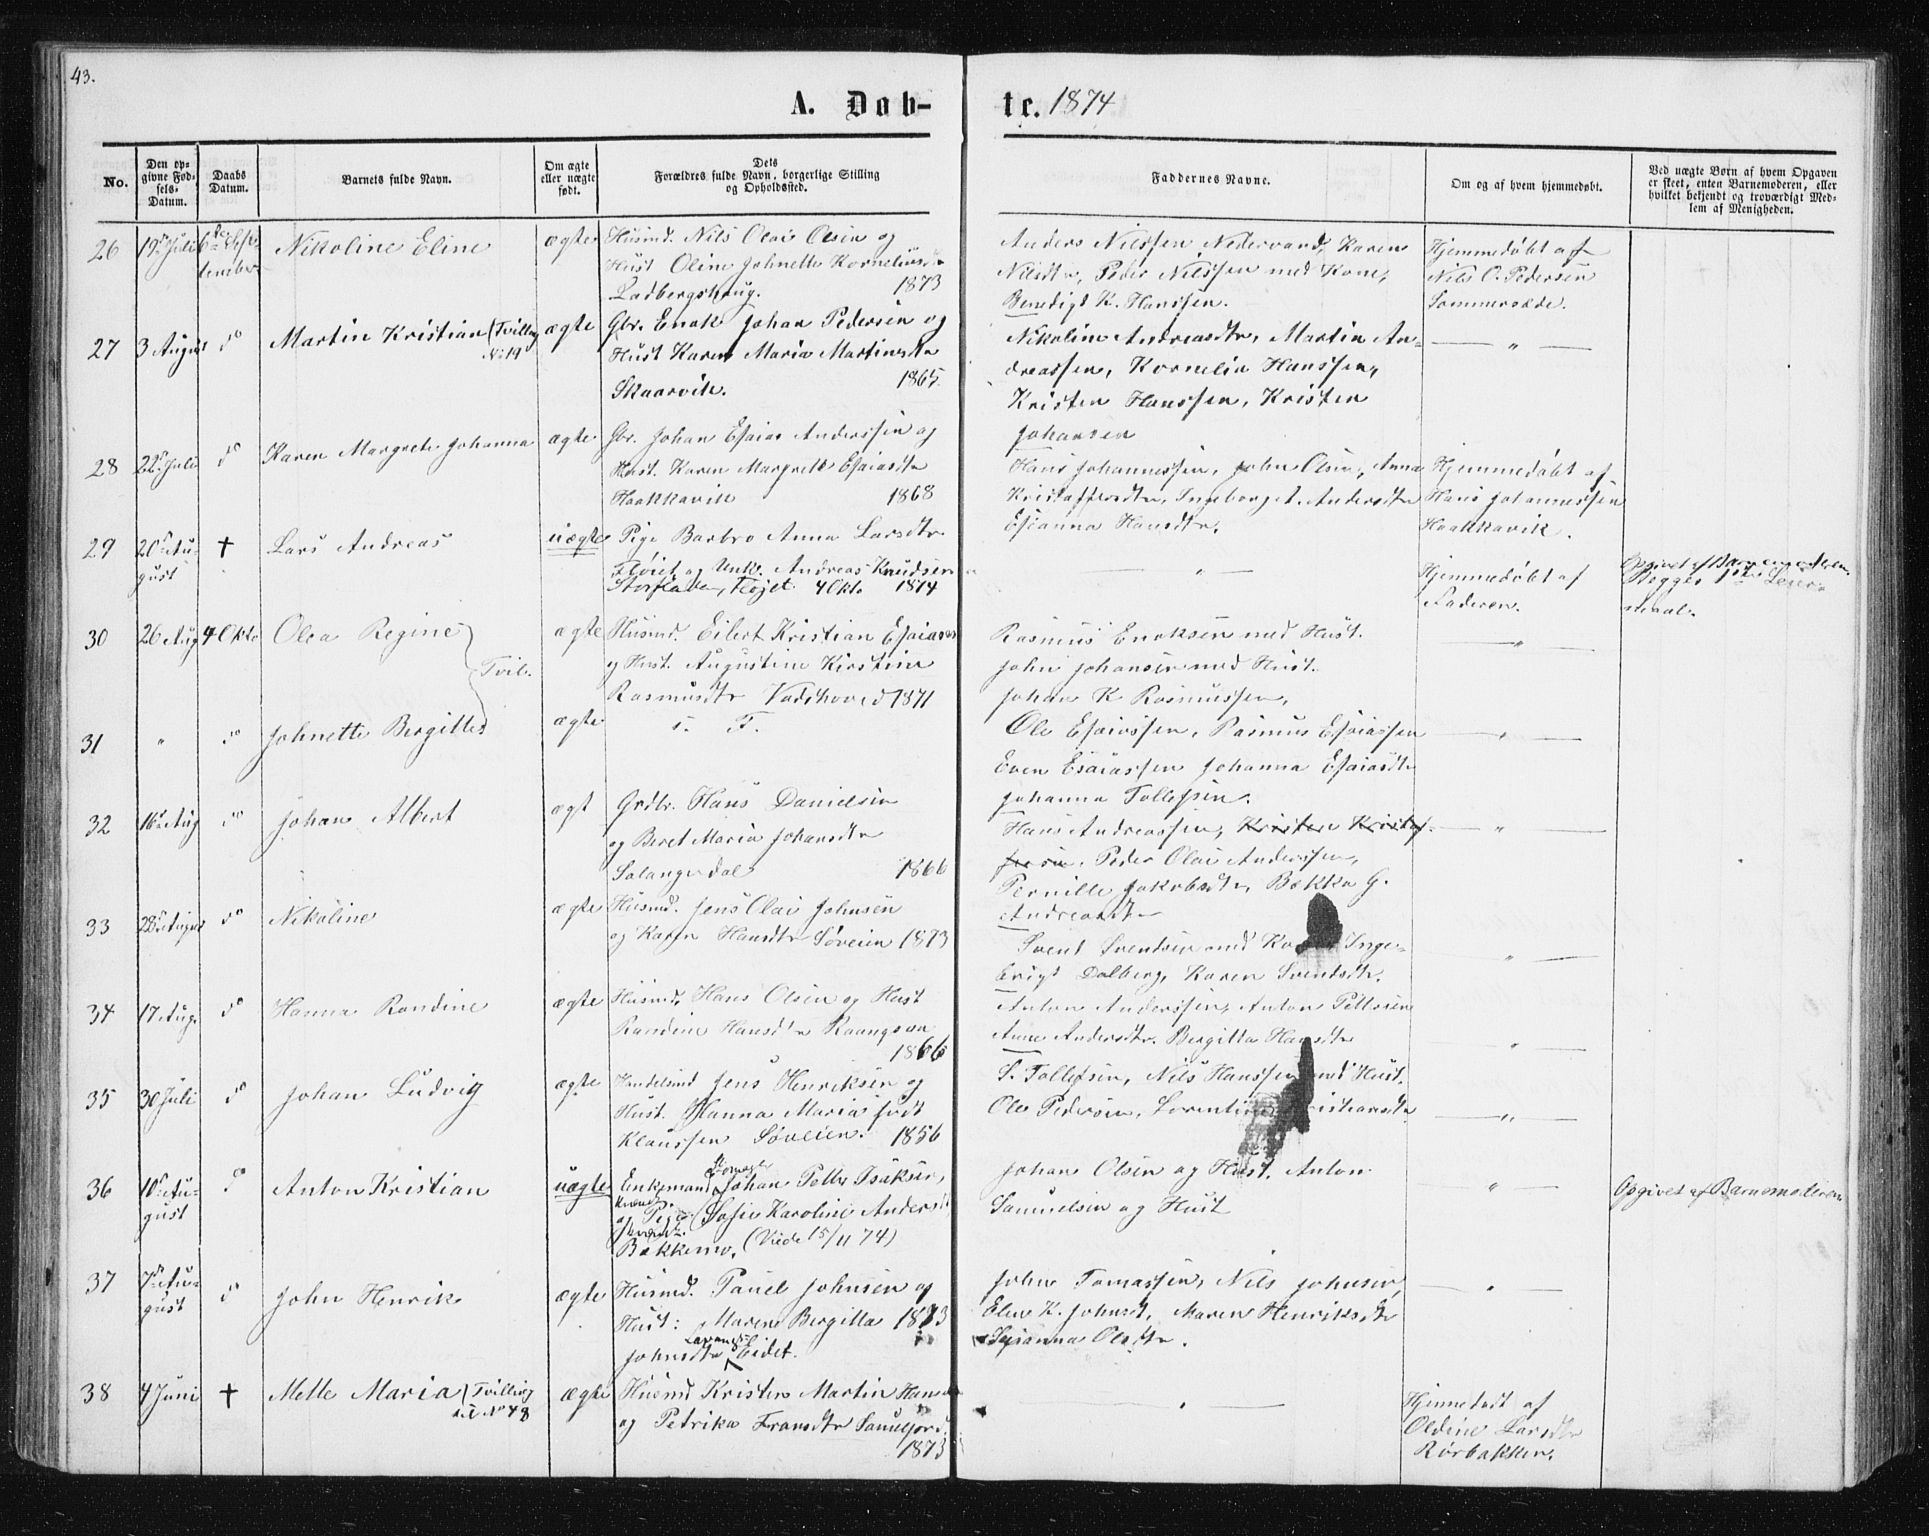 43.
A. Døb-
te. 1874
No.
Den op-
givne Fød-
sels-
Datum.
Daabs
Datum.
Barnets fulde Navn.
Om ægte
eller uægte
født.
Dets
Forældres fulde Navn, borgerlige Stilling
og Opholdssted.
Faddernes Navne.
Om og af hvem hjemmedøbt.
Ved uægte Børn af hvem Opgaven
er skeet, enten Barnemoderen, eller
hvilket bekjendt og troværdigt Med-
lem af Menigheden.
26 19de Juli 6de Sep-
tember
Nikoline Eline
ægte
Husmd. Nils Olai Olsen og
Hust Oline Johnette Korneliusdr
Ladbergshaug. 1873
Anders Nilssen Nedervand, Karen
Nilsdtr, Peder Nilssen med Kone,
Benedigt K. Hanssen.
Hjemmedøbt af
Nils O. Pedersen
Sommersæde.
27 3 August do
Martin Kristian (Tvilling
No 19
ægte
Gbr. Enok Johan Pedersen og
Hust Karen Maria Martinsdtr
Skaarvik. 1865
Nikoline Andreasdtr, Martin An-
dreassen, Kornelia Hanssen,
Kristen Hanssen, Kristen
Johansen
— " —
28 22de Juli do
Karen Margrete Johanna
ægte
Gbr. Johan Esaias Anderssen og
Hust. Karen Margrete Esaiasdtr
Haakkavik 1868
Hans Johannessen, John Olsen, Anna
Kristoffersdtr, Ingeborg A. Andersdtr
Esianna Hansdtr.
Hjemmedøbt af
Hans Johannessen
Haakkavik.
29 20de Au-
gust †
Lars Andreas
uægte
Pige Barbro Anna Larsdtr
Fløiet og Unk. Andreas Knudsen
Storfladen, Fløjet 4 Okto 1874
— " —
Hjemmedøbt af
Faderen.
Opgivet af Barnemoderen.
Begges 1ste Leier-
maal.
30 26 Aug 4 Okto
Olea Regine
Tvil.
ægte
Husmd. Eilert Kristian Esaiassen
og Hust. Augustine Kirstine
Rasmusdtr Vadshoved 1871
Rasmus Enoksen med Hust.
John Johansen med Hust.
Johan K Rasmussen,
— " —
31 " do
Johnette Bergitte
ægte
s. F.
Ole Esaiassen, Rasmus Esaiassen
Even Esaiassen Johanna Esaiasdtr
Johanna Tollefsen.
— " —
32 16de Aug do
Johan Albert
ægt
Grdbr. Hans Danielsen
og Beret Maria Johansdtr
Salangsdal 1866
Hans Andreassen, Kristen Kristof-
fersen, Peder Olai Anderssen,
Pernille Jakobsdtr, Bekka G.
Andreasdtr
— " —
33 28de August do
Nikoline
ægte
Husmd. Jens Olai Johnsen
og Karen Hansdtr Søveien 1873
Svend Svendsen med Kone Inge-
brigt Dalberg, Karen Svendsdtr.
— " —
34 17 Aug. do
Hanna Randine
ægte
Husmd. Hans Olsen og Hust
Randine Hansdtr Raangsaa
1866
Anton Anderssen, Anton Pettersen
Anne Andersdtr. Bergitta Hansdtr
— " —
35 30 Juli do
Johan Ludvig
ægte
Handelsmd Jens Henriksen og
Hust. Hanna Maria født
Klaussen Søveien. 1856
S. Tollefsen, Nils Hanssen med Hust.
Ole Pedersen, Lorentine Kristiansdtr
— " —
36 10de Au-
gust do
Anton Kristian
uægte
Enkemand Johan Petter Isaksen,
og Pige (Sofie Karoline Andersdt
Bækkemo. (Viede 15/11 74)
Johan Olsen og Hust. Anton
Samuelsen og Hust
— " —
Opgivet af Barnemoderen.
37 7de Au-
gust do
John Henrik
ægte
Husmd. Pauel Johnsen og
Hust: Maren Bergitta 1873
Johnsdtr Lavangs Eidet.
John Tomassen, Nils Johnsen,
Elen K. Johnsdt, Maren Henriksdtr
Susanna Olsdtr.
"
38 4 Juni †
Mette Maria (Tvilling
til No 48
ægte
Husmd Kristen Martin Hansen
og Petrika Fransdtr Saueljord.
1873
— " —
Hjemmedøbt af
Oldine Larsdtr
Rørbakken.